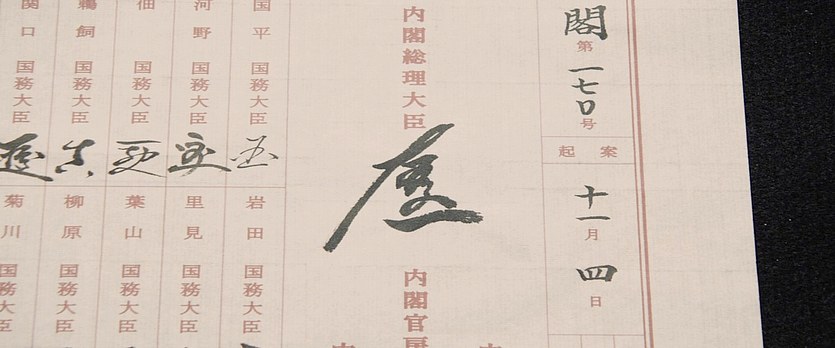 閣
第
一七〇号
起案
十一月
四日
内閣総理大臣
内閣官房
国平
国務大臣
岩田
国務大臣
河野
国務大臣
里見
国務大臣
佃
国務大臣
葉山
国務大臣
鵜飼
国務大臣
柳原
国務大臣
関口
国務大臣
菊川
国務大臣